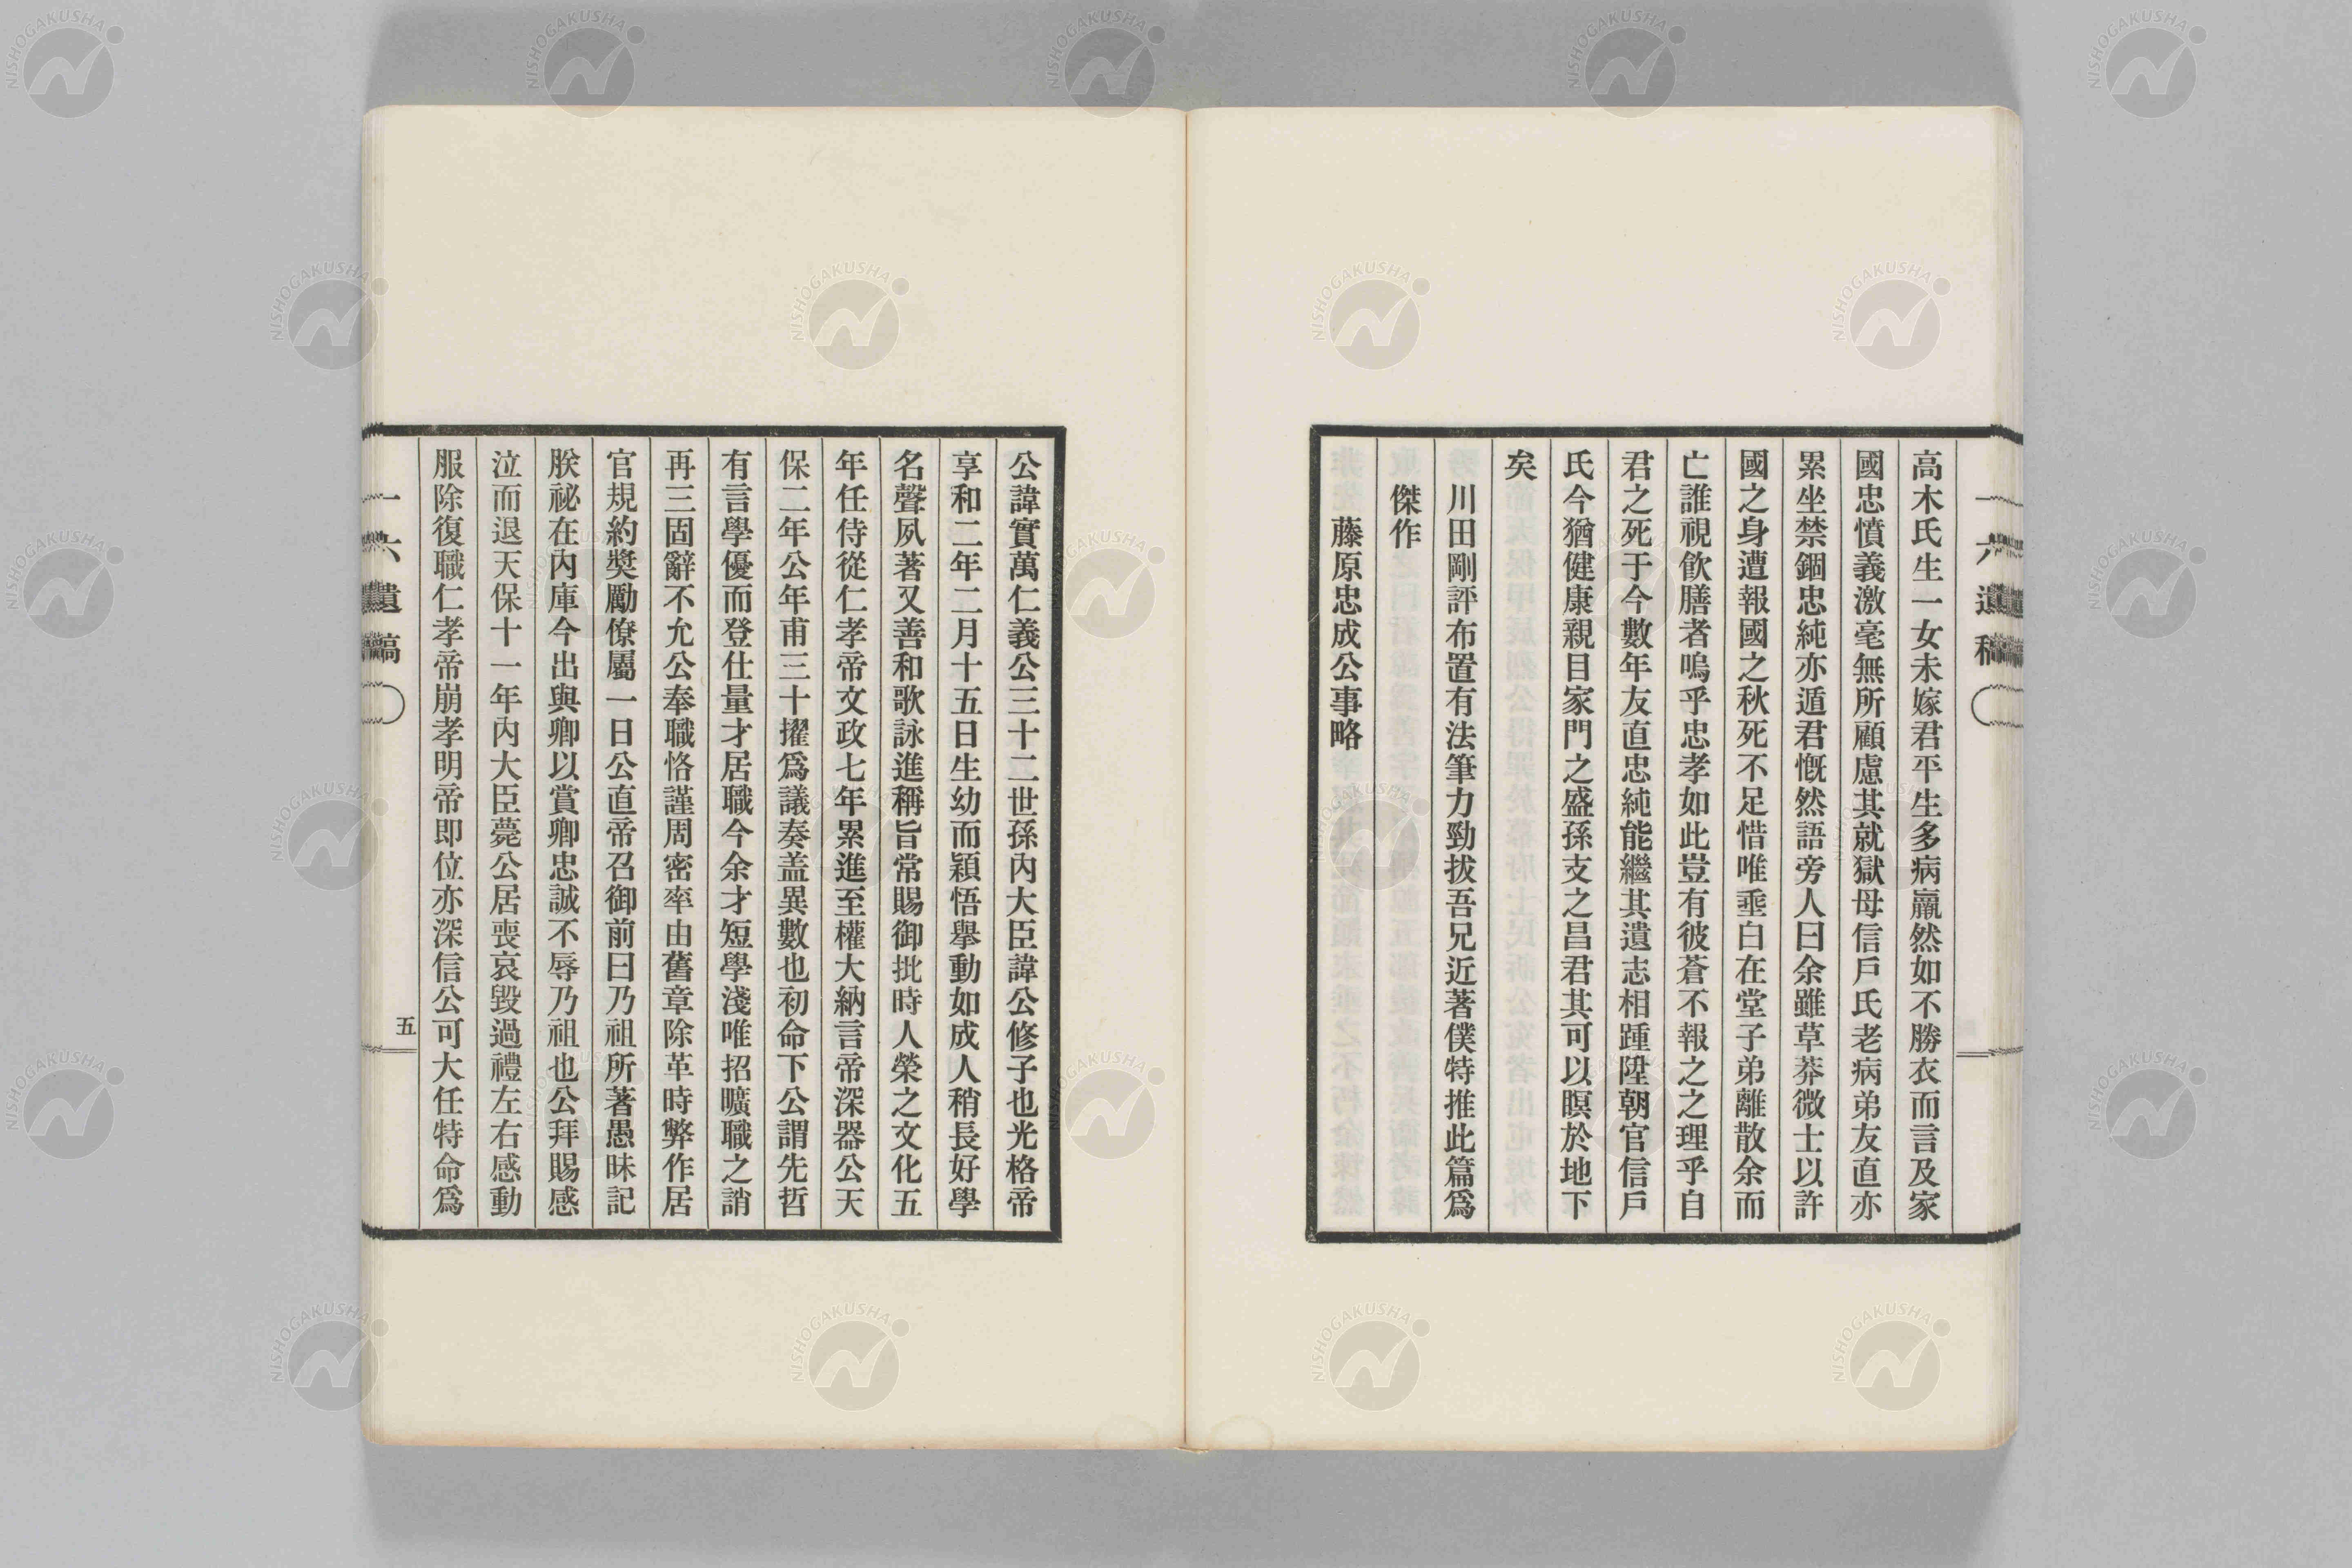 一六遺稿
高木氏生一女未嫁君平生多病羸然如不勝衣而言及家
國忠憤義激毫無所顧慮其就獄母信戶氏老病弟友直亦
累坐禁錮忠純亦遁君慨然語旁人曰余雖草莽微士以許
國之身遭報國之秋死不足惜唯埀白在堂子弟離散余而
亡誰視飮膳者嗚乎忠孝如此豈有彼蒼不報之之理乎自
君之死于今數年友直忠純能繼其遺志相踵陞朝官信戶
氏今猶健康親目家門之盛孫支之昌君其可以瞑於地下
矣
川田剛評布置有法筆力勁拔吾兄近著僕特推此篇爲
傑作
藤原忠成公事略
公諱實萬仁義公三十二世孫內大臣諱公修子也光格帝
享和二年二月十五日生幼而穎悟擧動如成人稍長好學
名聲夙著又善和歌詠進稱旨常賜御批時人榮之文化五
年任侍從仁孝帝文政七年累進至權大納言帝深器公天
保二年公年甫三十擢爲議奏盖異數也初命下公謂先哲
有言學優而登仕量才居職今余才短學淺唯招曠職之誚
再三固辭不允公奉職恪謹周密率由舊章除革時弊作居
官規約獎勵僚屬一日公直帝召御前曰乃祖所著愚昧記
朕祕在內庫今出與卿以賞卿忠誠不辱乃祖也公拜賜感
泣而退天保十一年內大臣薨公居喪哀毀過禮左右感動
服除復職仁孝帝崩孝明帝即位亦深信公可大任特命爲
一六遺稿
五
NISHOGAKUSHA